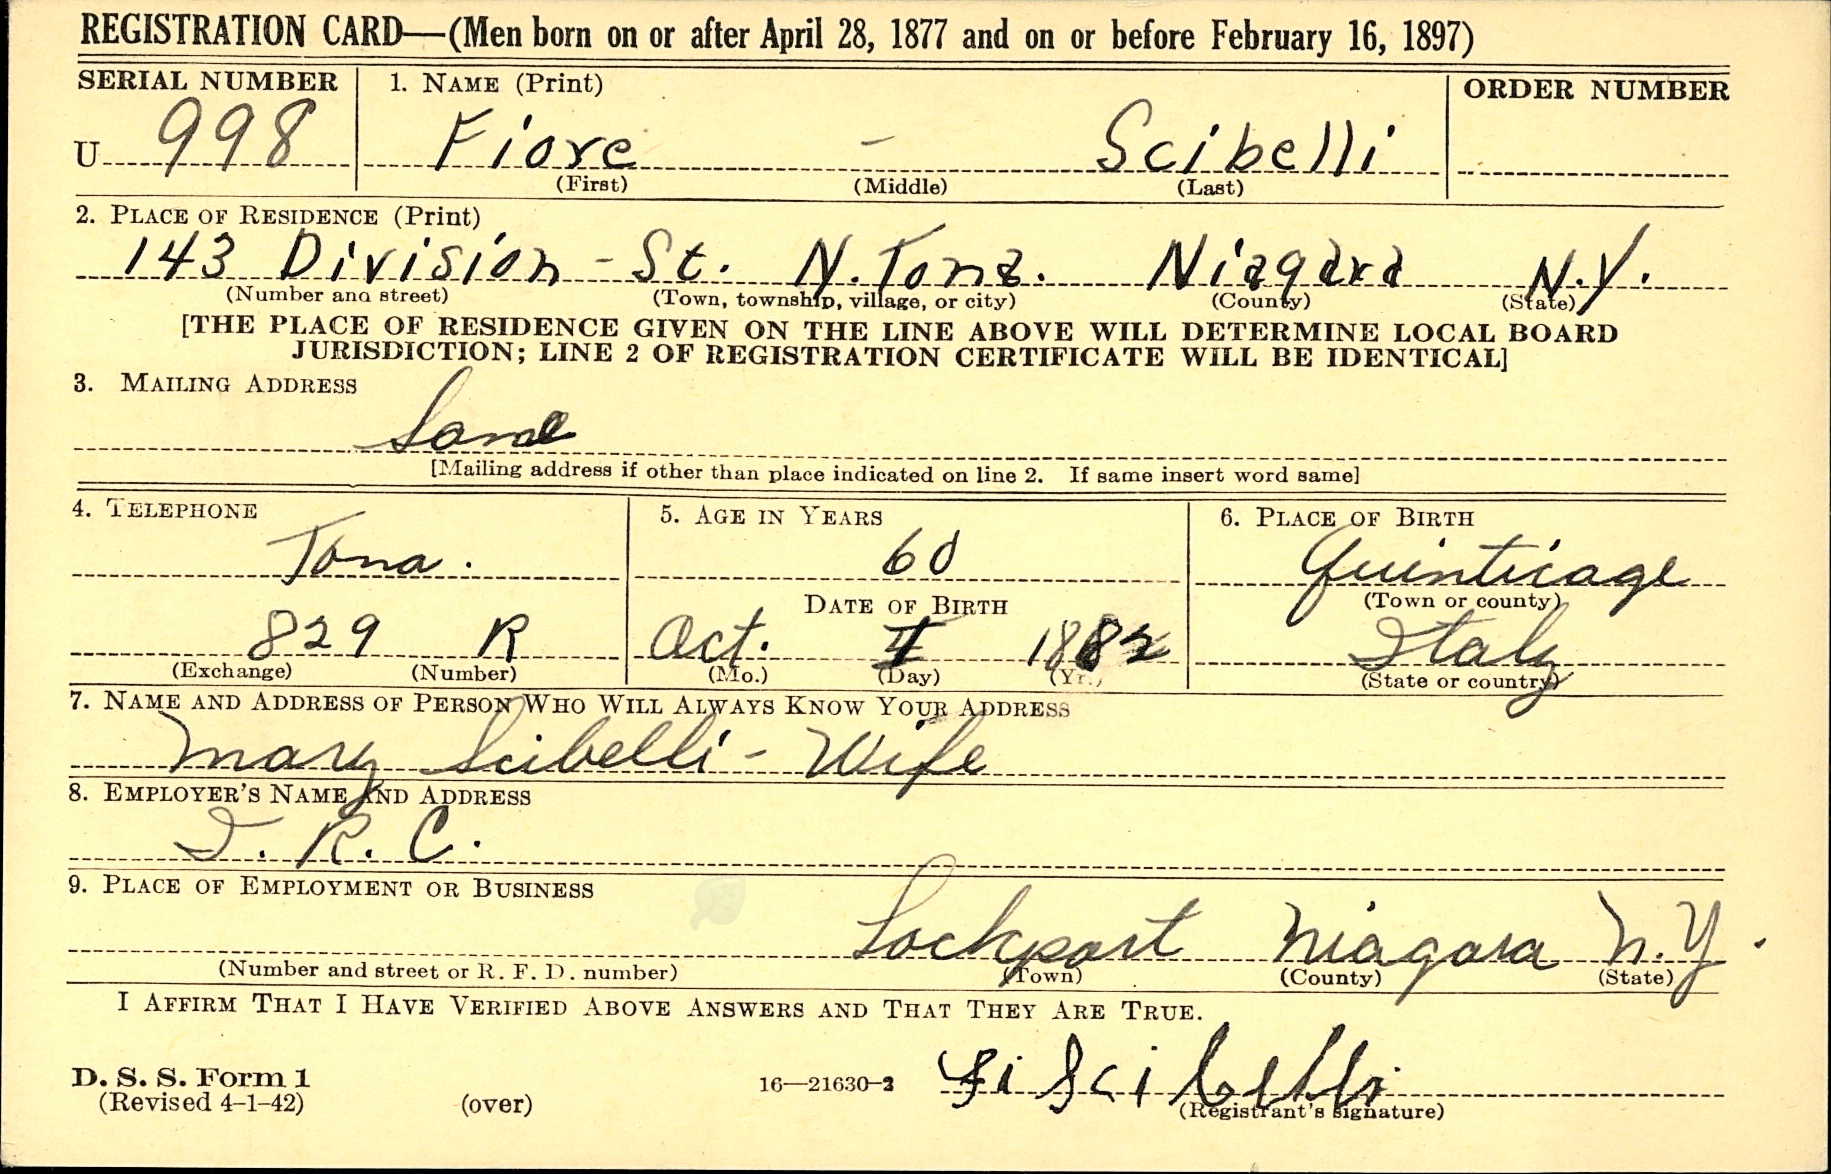 REGISTRATION CARD—(Men born on or after April 28, 1877 and on or before February 16, 1897)
SERIAL NUMBER 1. NAME (Print) ORDER NUMBER
U 998 Fiore - Scibelli
(First) (Middle) (Last)
2. PLACE OF RESIDENCE (Print)
143 Division - St. N. Tona. Niagara N.Y.
(Number and street) (Town, township, village, or city) (County) (State)
[THE PLACE OF RESIDENCE GIVEN ON THE LINE ABOVE WILL DETERMINE LOCAL BOARD
JURISDICTION; LINE 2 OF REGISTRATION CERTIFICATE WILL BE IDENTICAL]
3. MAILING ADDRESS
Same
[Mailing address if other than place indicated on line 2. If same insert word same]
4. TELEPHONE 5. AGE IN YEARS 6. PLACE OF BIRTH
Tona. 60 Quinticage
DATE OF BIRTH (Town or county)
829 R Oct. 1882 Italy
(Exchange) (Number) (Mo.) (Day) (Yr.) (State or country)
7. NAME AND ADDRESS OF PERSON WHO WILL ALWAYS KNOW YOUR ADDRESS
Mary Scibelli - Wife
8. EMPLOYER'S NAME AND ADDRESS
I. R. C.
9. PLACE OF EMPLOYMENT OR BUSINESS
Lockport Niagara N.Y.
(Number and street or R. F. D. number) (Town) (County) (State)
I AFFIRM THAT I HAVE VERIFIED ABOVE ANSWERS AND THAT THEY ARE TRUE.
D. S. S. Form 1 16—21630-2 Fi Scibelli
(Revised 4-1-42) (over) (Registrant's signature)